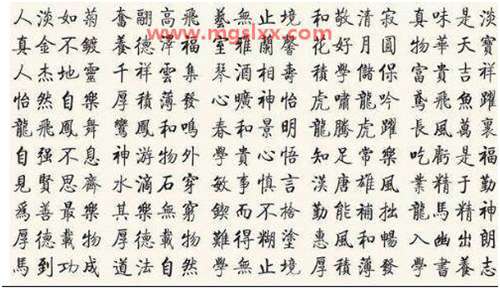 人淡如菊 奮翮高飛 藝無止境 和敬清寂 真味是淡
真金不鍍 養德澤福 室雅蘭馨 花好月圓 物華天寶
人杰地靈 千祥雲集 琴酒相壽 學儲 富貴吉祥
怡然自樂 厚積薄發 心曠神怡 虎嘯龍吟 鳶飛魚躍
龍飛鳳舞 鸞鳳和鳴 春和景明 龍騰虎躍 長風萬里
自强不息 神游物外 學貴心悟 知足常樂 吃虧是福
見賢思齊 水滴石穿 敏事慎言 漢唐雄風 業精于勤
為善最樂 其樂無窮 鍥而不捨 勤能補拙 龍馬精神
厚德載物 厚德載物 難得糊塗 惠風和暢 入幽出朗
馬到功成 道法自然 學無止境 厚積薄發 學書養志
www.mgslxx.com